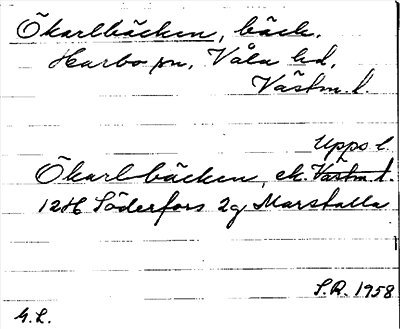 Ökarlbäcken, bäck.
Harbo sn, Våla hd,
Västm. l.
Upps l.
Ökarlbäcken, ek. Västm. l.
12H Söderfors 2g Marstalla
S.R. 1958
G.L.